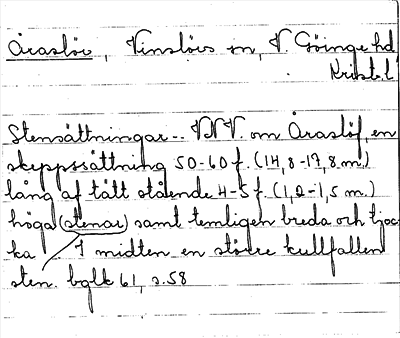 Araslöv, Vinslövs sn, V. Göinge hd
Krist.l.
Stensättningar -- VNV. om Araslöf, en
skeppssättning 50-60 f. (14,8-17,8 m.)
lång af tätt stående 4-5 f. (1,2-1,5 m.)
höga (stenar) samt temligen breda och tjoc-
ka I midten en större kullfallen
sten. bglk 61, s.58